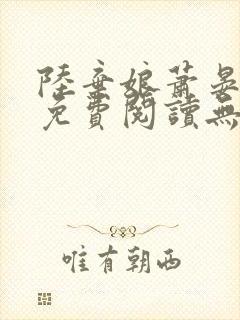 陸棄娘蕭晏
免費閱讀無
唯有朝西